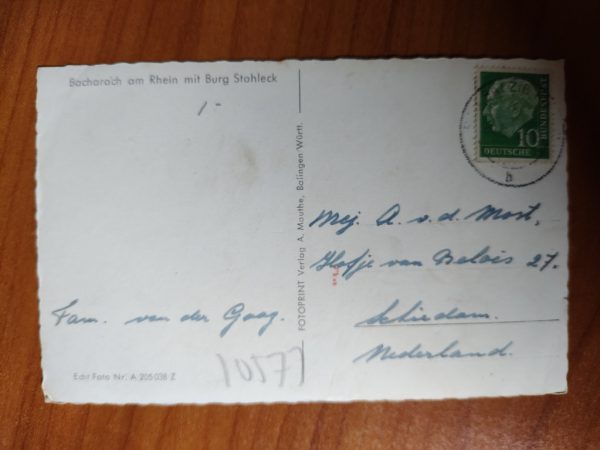 Bacharach am Rhein mit Burg Stahleck
1-
FOTOPRINT Verlag A. Mauthe, Balingen Württ.
DEUTSCHE
10
BUNDESPOST
h
Mej. A. v. d. Most.
Hofje van Belois 27.
Schiedam.
Nederland.
Fam. van der Gaag.
Echt Foto Nr. A 205038 Z